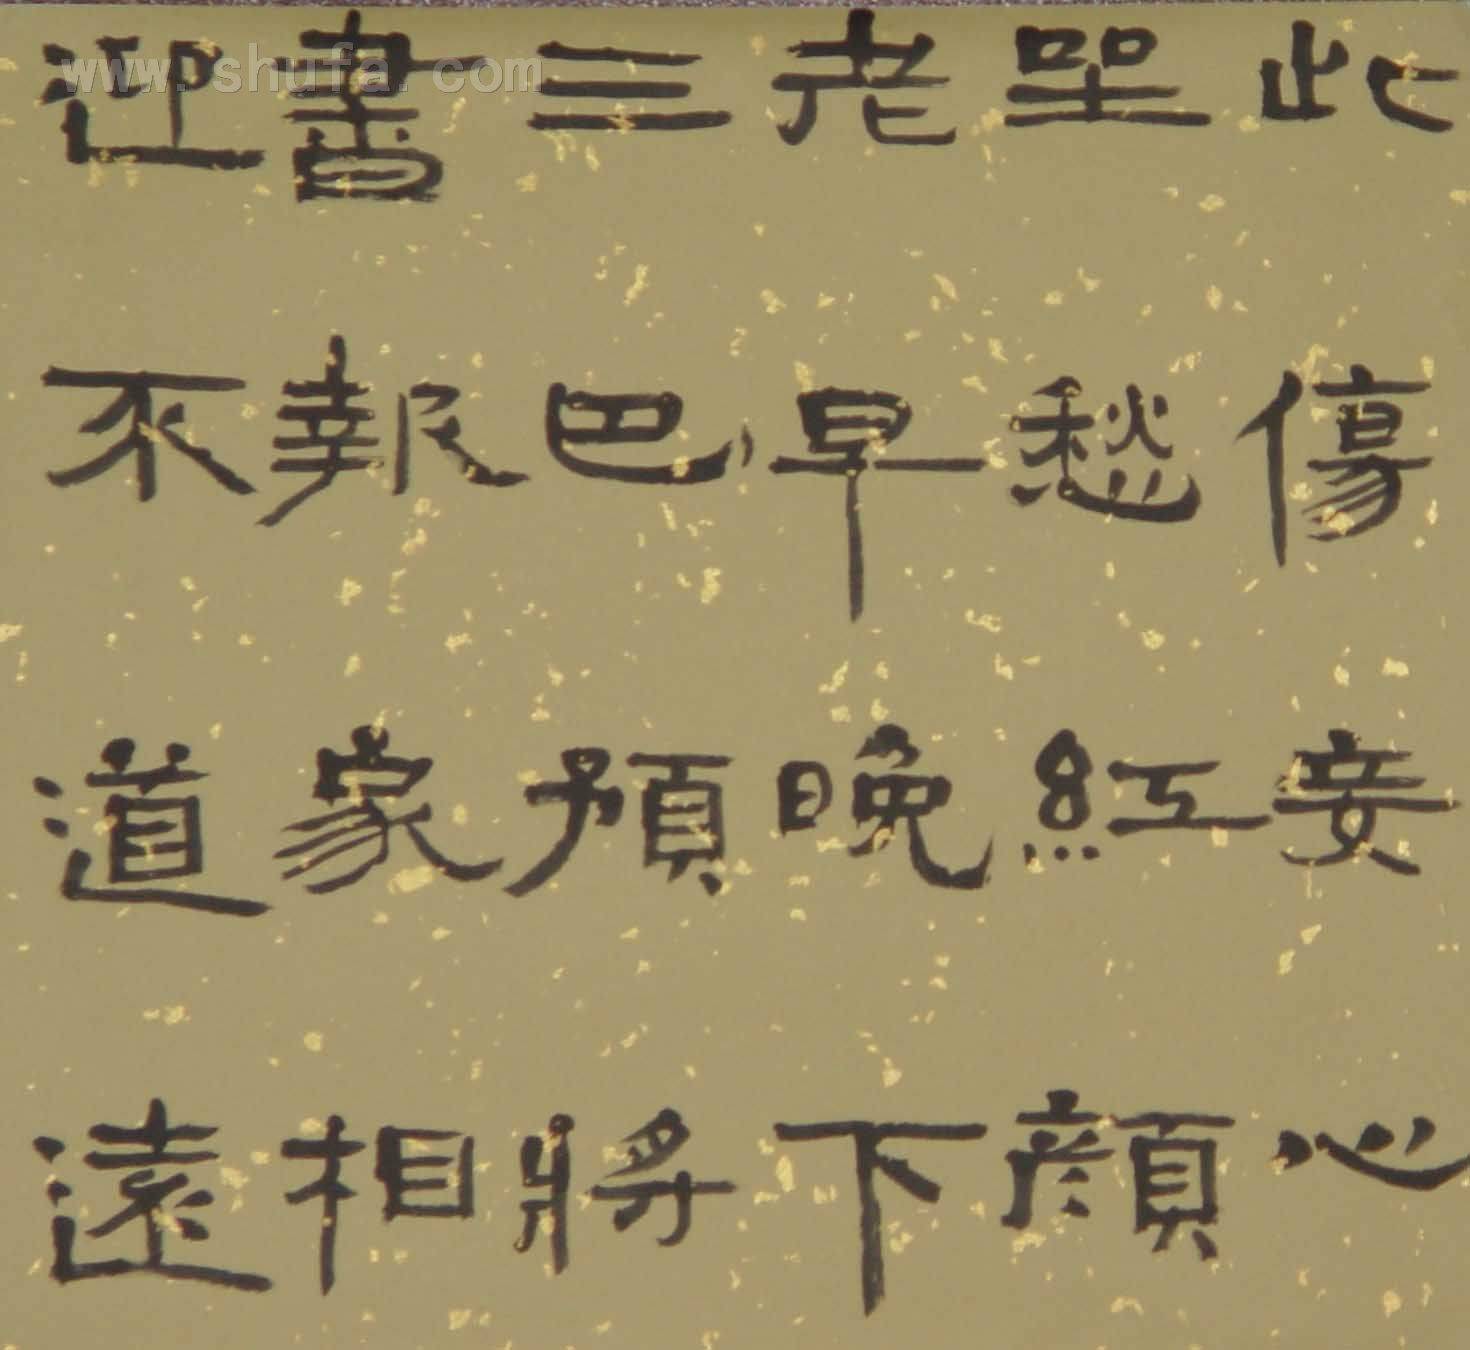 www.shufa.com
此傷妾心
坐愁紅顏
老早晚下
三巴預將
書報家相
迎不道遠